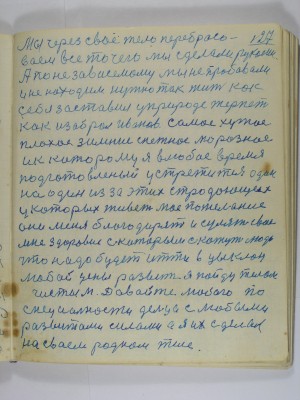 127
Мы через своё тело перебрасо-
ваем все то чего мы сделали руками
А по независимому мы не пробовали
и не находим нужно так жить как
себя заставил у природе терпет
как избрал иванов. самое хужое
плохое зимние снежное морозное
и к которому я в любое время
подготовленый устретится один
на один из за этих страдающих
у которых живет мое пожелание
они меня благодарят и сулят свае
мне здоровие с которым скажут люди
что надо будет итти в
любой цены развития я пойду телом
чистым. Давайте любого по
специальности дельца с любыми
развитами силами а я их сделаю
на своем родном теле.